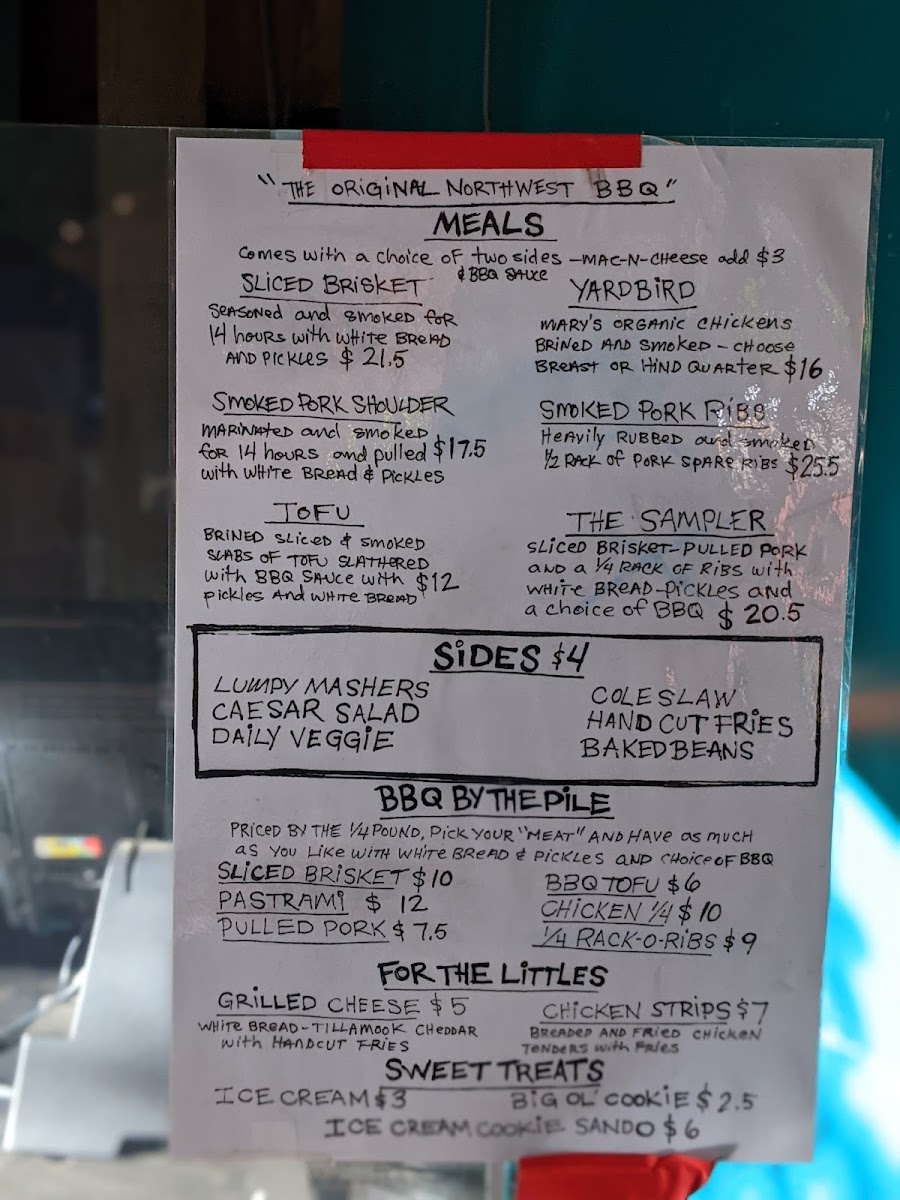 "THE ORIGINAL NORTHWEST BBQ"
MEALS
Comes with a choice of two sides -MAC-N-CHEESE add $3
& BBQ SAUCE
SLICED BRISKET
SEASONED and SMOKED FOR
14 hours with WHITE BREAD
AND PICKLES $ 21.5
YARDBIRD
MARY'S ORGANIC CHICKENS
BRINED AND SMOKED - CHOOSE
BREAST OR HIND QUARTER $16
SMOKED PORK SHOULDER
MARINATED and smoked
for 14 hours and pulled $17.5
with WHITE BREAD & PICKLES
SMOKED PORK RIBS
HEAVILY RUBBED and smoked
1/2 RACK of PORK SPARE RIBS $25.5
TOFU
BRINED SLICED & SMOKED
SLABS OF TOFU SLATHERED
with BBQ SAUCE with $12
pickles AND WHITE BREAD
THE SAMPLER
SLICED BRISKET-PULLED PORK
AND a 1/4 RACK OF RIBS with
WHITE BREAD-PICKLES AND
a choice of BBQ $ 20.5
SIDES $4
LUMPY MASHERS
CAESAR SALAD
DAILY VEGGIE
COLESLAW
HAND CUT FRIES
BAKED BEANS
BBQ BY THE PILE
PRICED BY THE 1/4 POUND, PICK YOUR "MEAT" AND HAVE as MUCH
AS YOU LIKE WITH WHITE BREAD & PICKLES AND CHOICE OF BBQ
SLICED BRISKET $10
PASTRAMI $ 12
PULLED PORK $ 7.5
BBQ TOFU $6
CHICKEN 1/4 $ 10
1/4 RACK-O-RIBS $9
FOR THE LITTLES
GRILLED CHEESE $ 5
WHITE BREAD-TILLAMOOK CHEDDAR
with HANDCUT FRIES
CHICKEN STRIPS $7
BREADED AND FRIED CHICKEN
TENDERS with FRIES
SWEET TREATS
ICE CREAM $3
BIG OL' COOKIE $ 2.5
ICE CREAM COOKIE SANDO $ 6